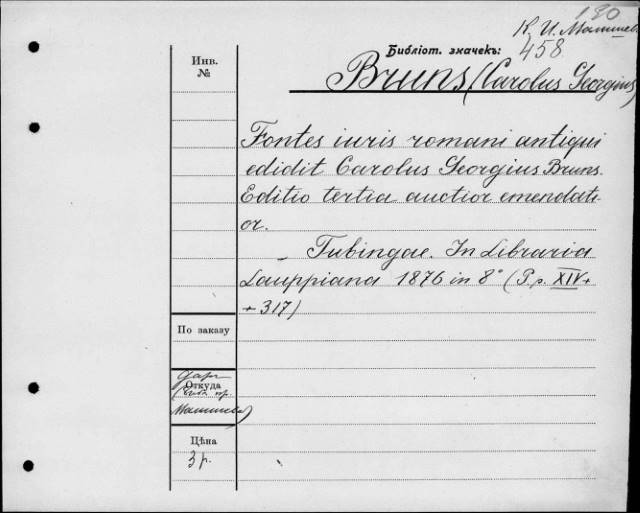 190
К. И. Малышев.
Библіот. значекъ:
458
Bruns (Carolus Georgius)
Инв.
№
Fontes iuris romani antiqui
edidit Carolus Georgius Bruns.
Editio tertia auctior emendati-
or.
– Tubingae. In Libraria
Lauppiana 1876 in 8° (P.p. XIV+
+317)
По заказу
Откуда
даръ
Малышева)
Цѣна
3 р.